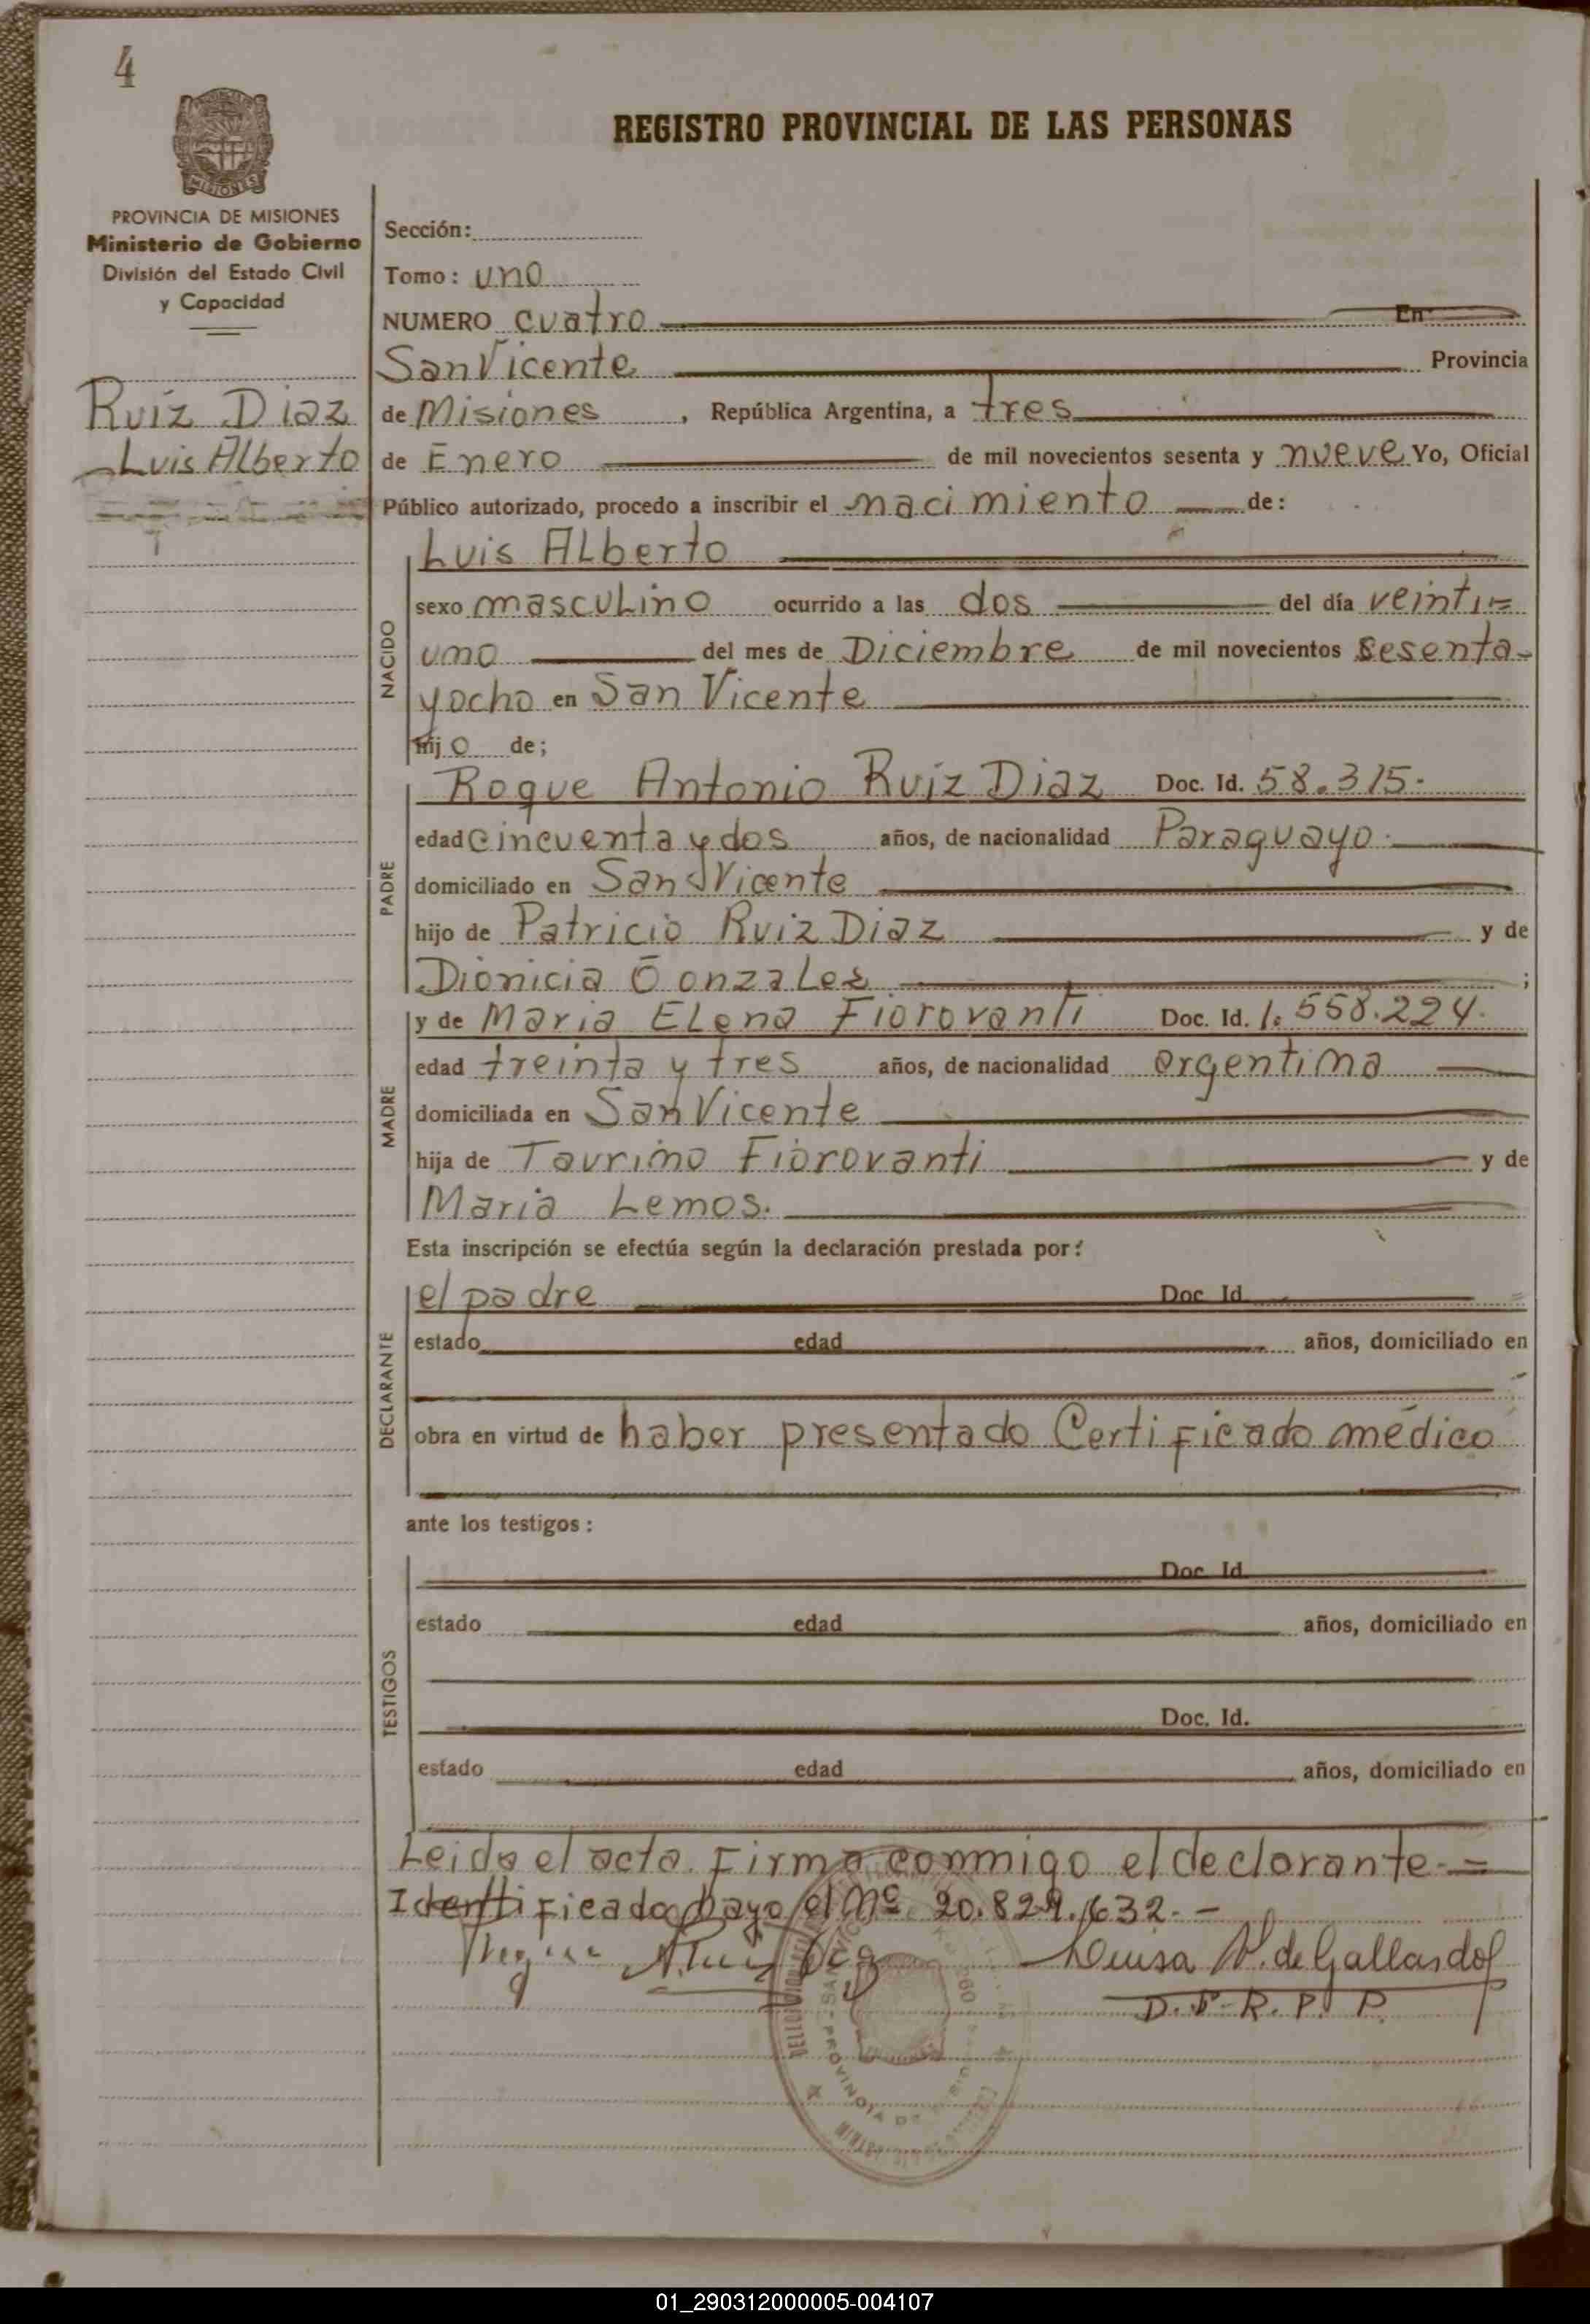 4
MISIONES
PROVINCIA DE MISIONES
Ministerio de Gobierno
División del Estado Civil
y Capacidad
Ruíz Diaz
Luis Alberto
REGISTRO PROVINCIAL DE LAS PERSONAS
Sección:
Tomo: uno
NUMERO cuatro En
San Vicente Provincia
de Misiones, República Argentina, a tres
de Enero de mil novecientos sesenta y nueve Yo, Oficial
Público autorizado, procedo a inscribir el nacimiento de:
NACIDO
Luis Alberto
sexo masculino ocurrido a las dos del día veinti=
uno del mes de Diciembre de mil novecientos sesenta-
y ocho en San Vicente
hijo de;
PADRE
Roque Antonio Ruíz Diaz Doc. Id. 58.315.
edad cincuenta y dos años, de nacionalidad Paraguayo.
domiciliado en San Vicente
hijo de Patricio Ruiz Diaz y de
Dionicia Gonzalez ;
MADRE
y de Maria Elena Fiorovanti Doc. Id. 1.558.224.
edad treinta y tres años, de nacionalidad argentina
domiciliada en San Vicente
hija de Taurino Fiorovanti y de
Maria Lemos.
Esta inscripción se efectúa según la declaración prestada por:
DECLARANTE
el padre Doc. Id.
estado edad años, domiciliado en
obra en virtud de haber presentado Certificado médico
ante los testigos:
TESTIGOS
Doc. Id.
estado edad años, domiciliado en
Doc. Id.
estado edad años, domiciliado en
Leida el acta firma conmigo el declarante-=
Identificado bayo el Nº 20.829.632.-
Luisa de Gallardo
R. P. P.
PROVINCIA DE
01_290312000005-004107